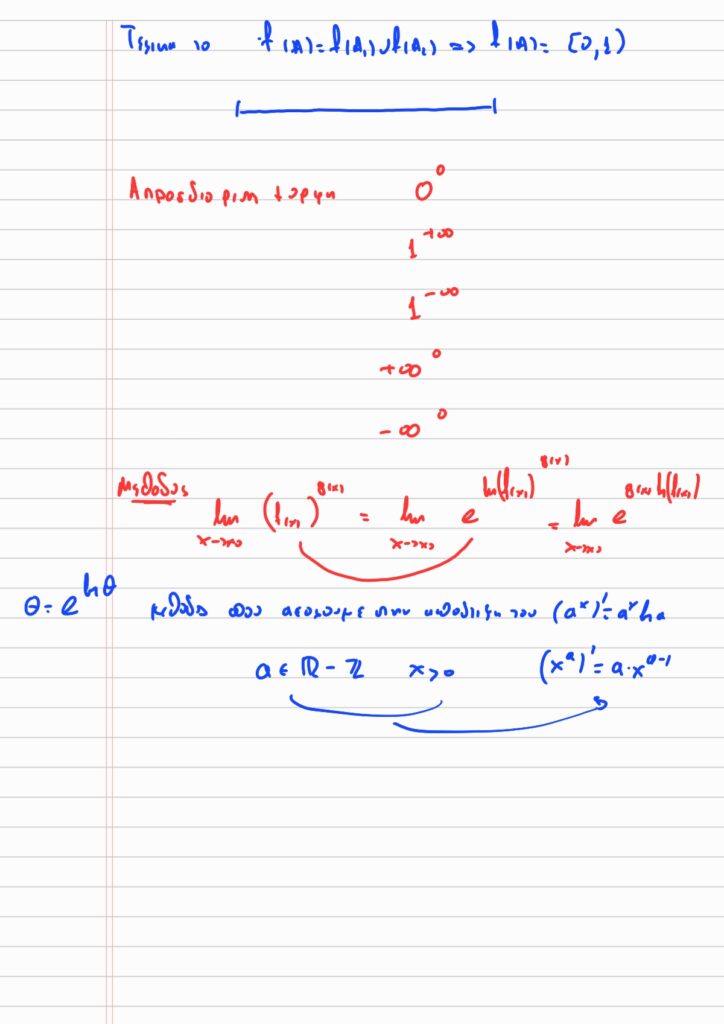 Τελικα το f(A) = f(A₁) ∪ f(A₂) => f(A) = [0,1)
Απροσδιοριστη μορφη 0⁰
1^{+∞}
1^{-∞}
+∞⁰
-∞⁰
Μεθοδος lim_{x->x₀} (f(x))^{g(x)} = lim_{x->x₀} e^{ln(f(x))^{g(x)}} = lim_{x->x₀} e^{g(x) ln(f(x))}
θ = e^{lnθ} μεθοδο που στην αποδειξη του (a^x)' = a^x ln a
a ∈ ℝ - ℤ x>0 (x^a)' = a·x^{a-1}